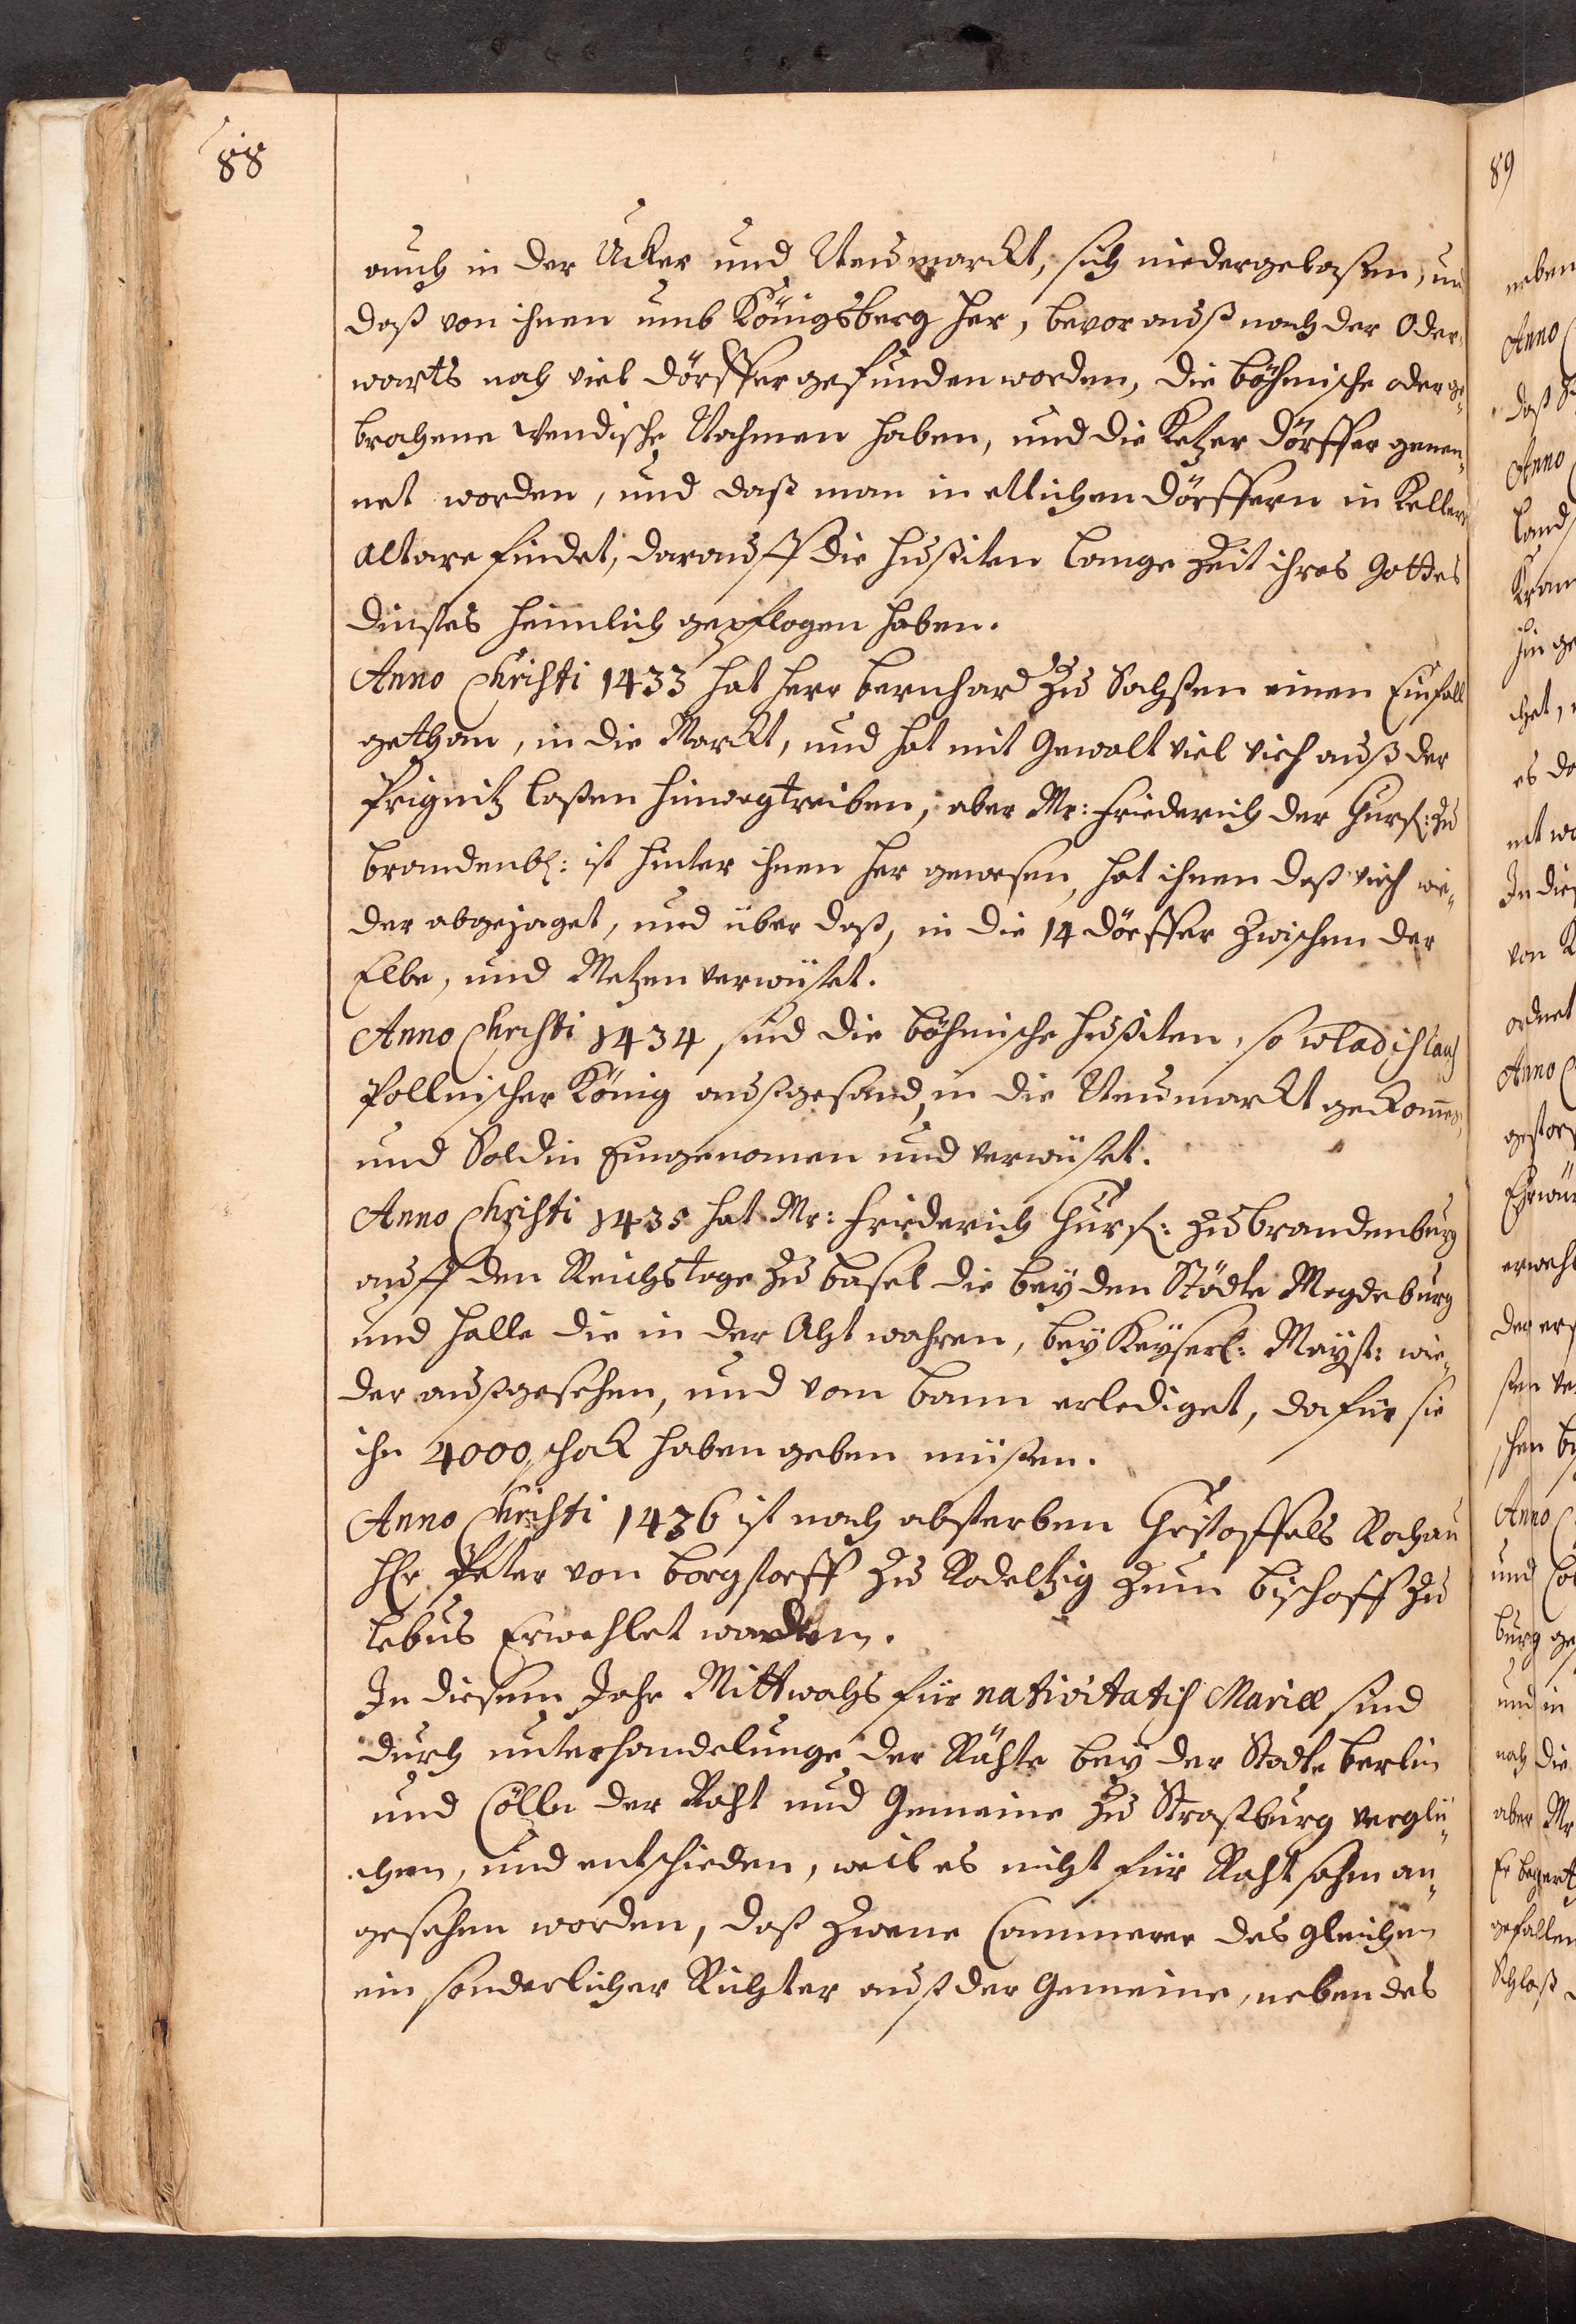 88
auch in der Ucker und Neumarckt, sich niedergelaßen, un
daß von ihnen umb Königsberg her, bevor auß nach der Oder
warts noch viel dörffer gefunden worden, die böhmische oder ge„
brochene Wendische Nahmen haben, und die Ketzer dörffer genen„
net worden, und daß man in etlichen dörffern in Kellern
altare findet, darauff die hußiten lange Zeit ihres Gottes
dinstes heimlich gepflogen haben.
Anno Christi 1433 hat herr bernhard zu Sachßen einen Einfall
gethan, in die Marckt, und hat mit Gewalt viel vieh auß der
Prignitz laßen hinwegtreiben, aber Mr: Friederich der Churf: zu
brandenb: ist hinter ihnen her gewesen, hat ihnen daß vieh wie„
der abgejaget, und über daß, in die 14 dörffer zwischen der
Elbe, und Metzen verwüstet.
Anno Christi 1434 sind die böhmische hußiten, so wladislaus
Pollnischer König außgesand, in die Neumarckt gekommen,
und Soldin Eingenomen und verwüstet.
Anno Christi 1435 hat Mr: Friederich Churf: zu brandenburg
auff den Reichstage zu basel die beyden Städte Magdeburg
und Halle die in der Acht wahren, bey Keyserl: Mayst: wie„
der außgesehen, und vom bann erlediget, dafür sie
ihn 4000, schok haben geben müßen.
Anno Christi 1436 ist nach absterben Christoffels Rochau
HEr Peter von borgstorff zu Rodeltzig zum bischoff zu
lebus Erwehlet worden.
In diesem Jahr Mittwochs für nativitatis Mariæ sind
durch unterhandelunge der Räthe bey der Stadte berlin
und Cölln der Raht und Gemeine zu Straßburg verglü„
chen, und entschieden, weil es nicht für Rahtsahm an„
gesehen worden, daß zwene Cammerer des gleichen
ein sonderlicher Richter auß der Gemeine, neben des
89
neben
Anno
daß
Anno
land
hin ge
chet,
es da
net wo
In dies
von K
ordnet
Anno
gestor
erwehl
der
Anno
und
burg ge
und in
nach die
aber Mr
gefallen
Schloß